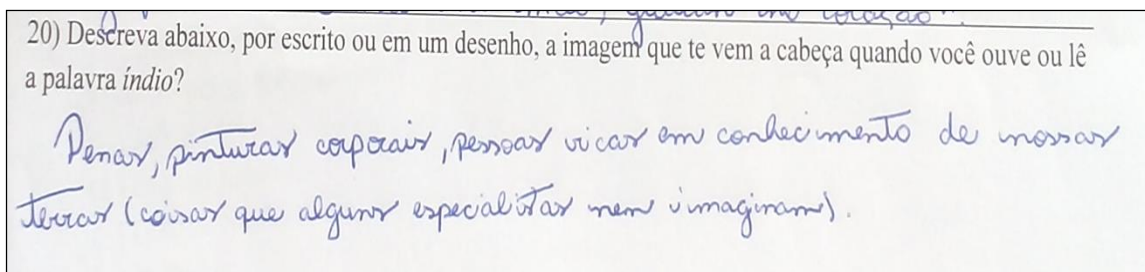 coração".
20) Descreva abaixo, por escrito ou em um desenho, a imagem que te vem a cabeça quando você ouve ou lê
a palavra índio?
Penas, pinturas corporais, pessoas ricas em conhecimento de nossas
terras (coisas que alguns especialistas nem imaginam).